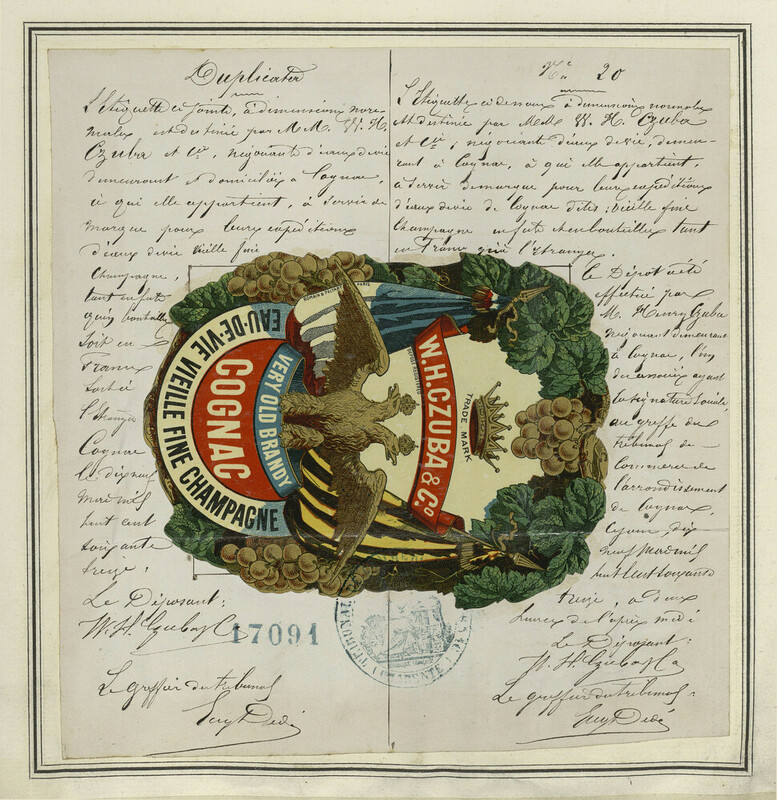 Duplicata
L'Etiquette ci jointe, à dimensions nor-
males est destinée par MM. W. H.
Czuba et Cie, négociants d'eaux de vie
demeurant et domiciliés à Cognac,
à qui elle appartient, à servir de
marque pour leurs expéditions
d'eaux de vie vieille fine
Champagne,
tant en fûts
qu'en bouteilles
soit en
France
soit à
l'étranger
Cognac
le dix neuf
mai mil
huit cent
soixante
treize.
Le Déposant:
W. H. Czuba & Co
17091
Le greffier du tribunal
No 20
L'Etiquette ci dessous à dimensions normales
est destinée par MM. W. H. Czuba
et Cie, négociants d'eaux de vie, demeu-
rant à Cognac, à qui elle appartient,
à servir de marque pour leurs expéditions
d'eaux de vie de Cognac dites: vieille fine
Champagne en fûts et en bouteilles tant
en France qu'à l'étranger.
Le Dépôt a été
effectué par
M. Henry Czuba
négociant demeurant
à Cognac, l'un
des associés ayant
la signature sociale
au greffe du
tribunal de
Commerce de
l'arrondissement
de Cognac,
ce jour, dix
neuf mai mil
huit cent soixante
treize, à deux
heures de l'après midi
Le Déposant:
W. H. Czuba & Co
Le greffier du tribunal:
W.H. CZUBA & Co
DÉPOSÉ REGISTERED
TRADE MARK
VERY OLD BRANDY
COGNAC
EAU-DE-VIE VIEILLE FINE CHAMPAGNE
PARIS